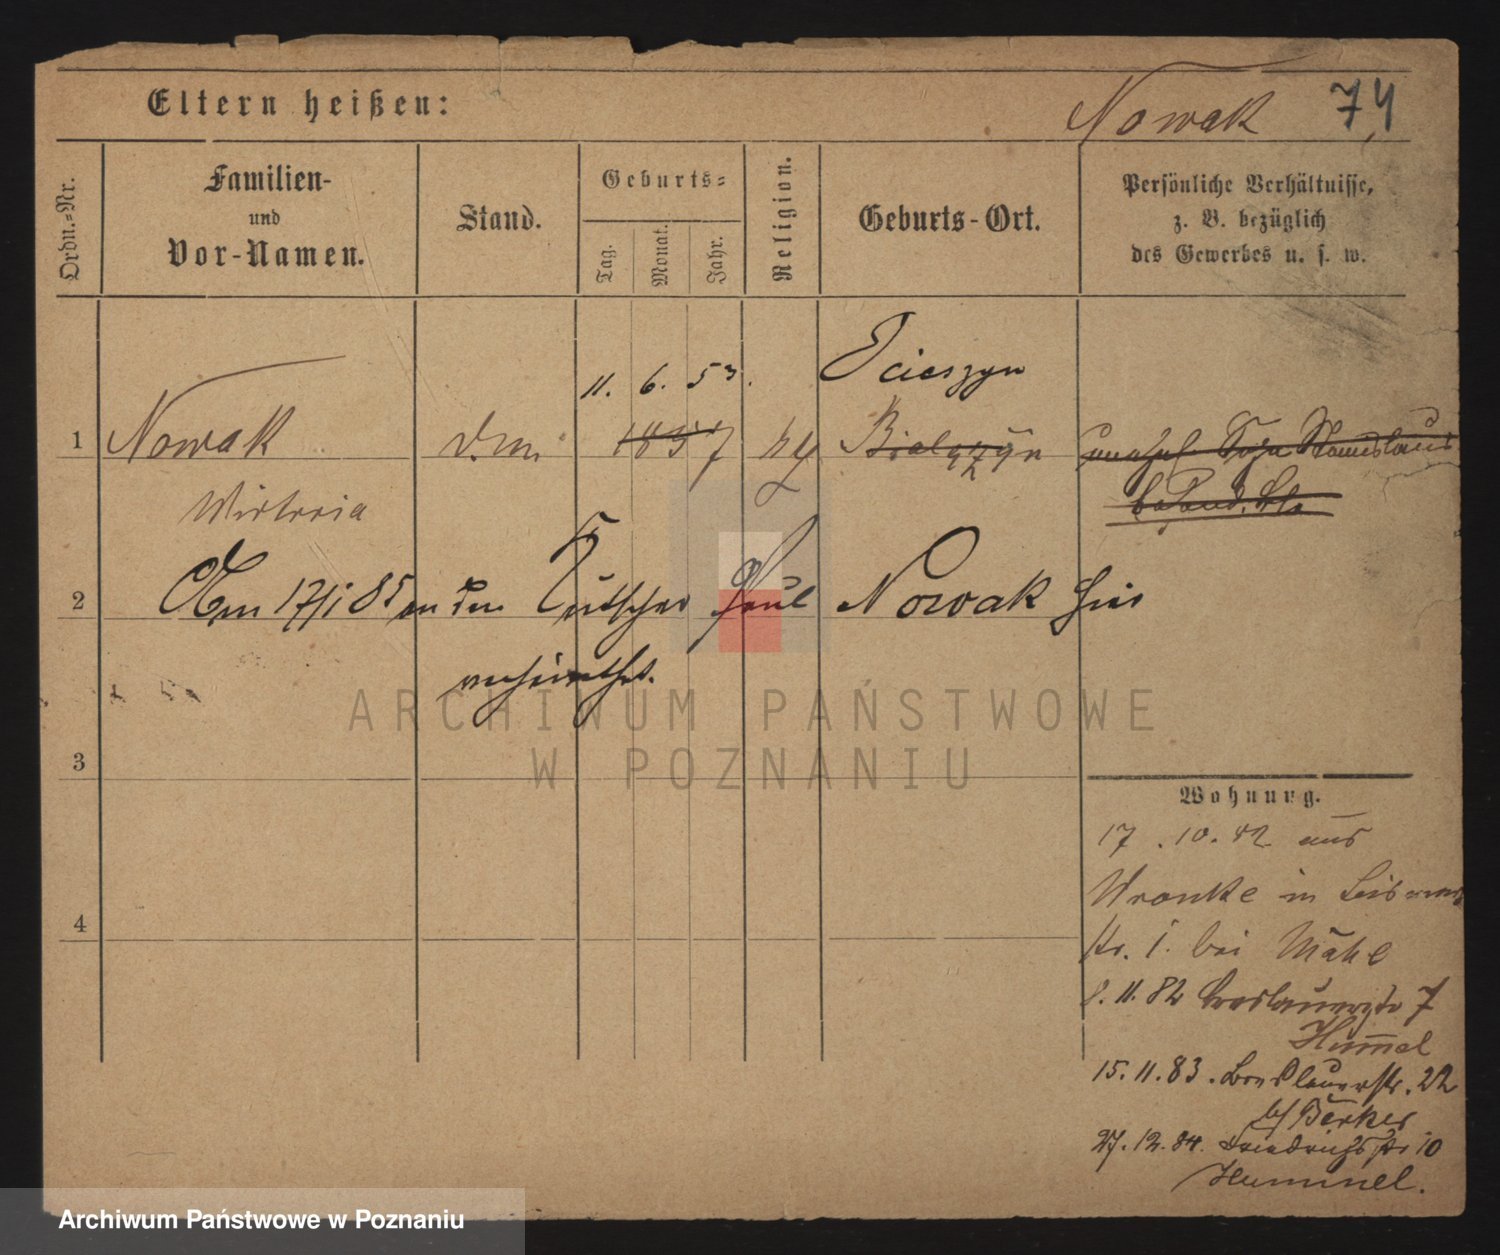 Eltern heißen:
Nowak 74
Ordn.=Nr.
Familien-
und
Vor-Namen.
Stand.
Geburts=
Tag.
Monat.
Jahr.
Religion.
Geburts-Ort.
Persönliche Verhältnisse,
z. B. bezüglich
des Gewerbes u. s. w.
11. 6. 53. Scieszyn
1 Nowak 1857
Wictoria
2 Am 17/1 85 an den Kutscher Paul Nowak hier
verheirathet.
3
4
Wohnung.
17. 10. 82 aus
Wronke in
str. 1. bei
8. 11. 82 Breslauerstr 7
Hummel
15. 11. 83. Breslauerstr. 22
b/ Berker
27. 12. 84. Friedrichsstr 10
Hummel.
ARCHIWUM PAŃSTWOWE
W POZNANIU
Archiwum Państwowe w Poznaniu